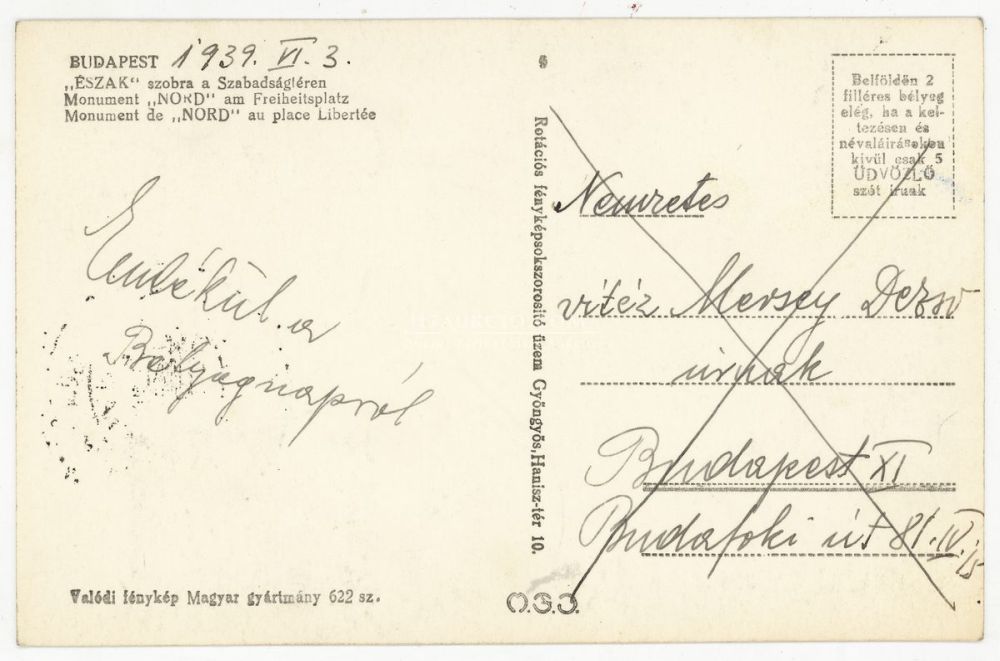 BUDAPEST 1939. VI. 3.
„ÉSZAK" szobra a Szabadságtéren
Monument „NORD" am Freiheitsplatz
Monument de „NORD" au place Libertée
Emlékül a
Bélyegnapról
Valódi fénykép Magyar gyártmány 622 sz.
Rotációs fényképsokszorosító üzem Gyöngyös, Hanisz-tér 10.
O.S.J.
Belföldön 2
filléres bélyeg
elég, ha a kel-
tezésen és
névaláírásokon
kívül csak 5
ÜDVÖZLŐ
szót írunk
Nemzetes
vitéz Mersey Dezső
úrnak
Budapest XI
Budafoki út 81. IV. 15